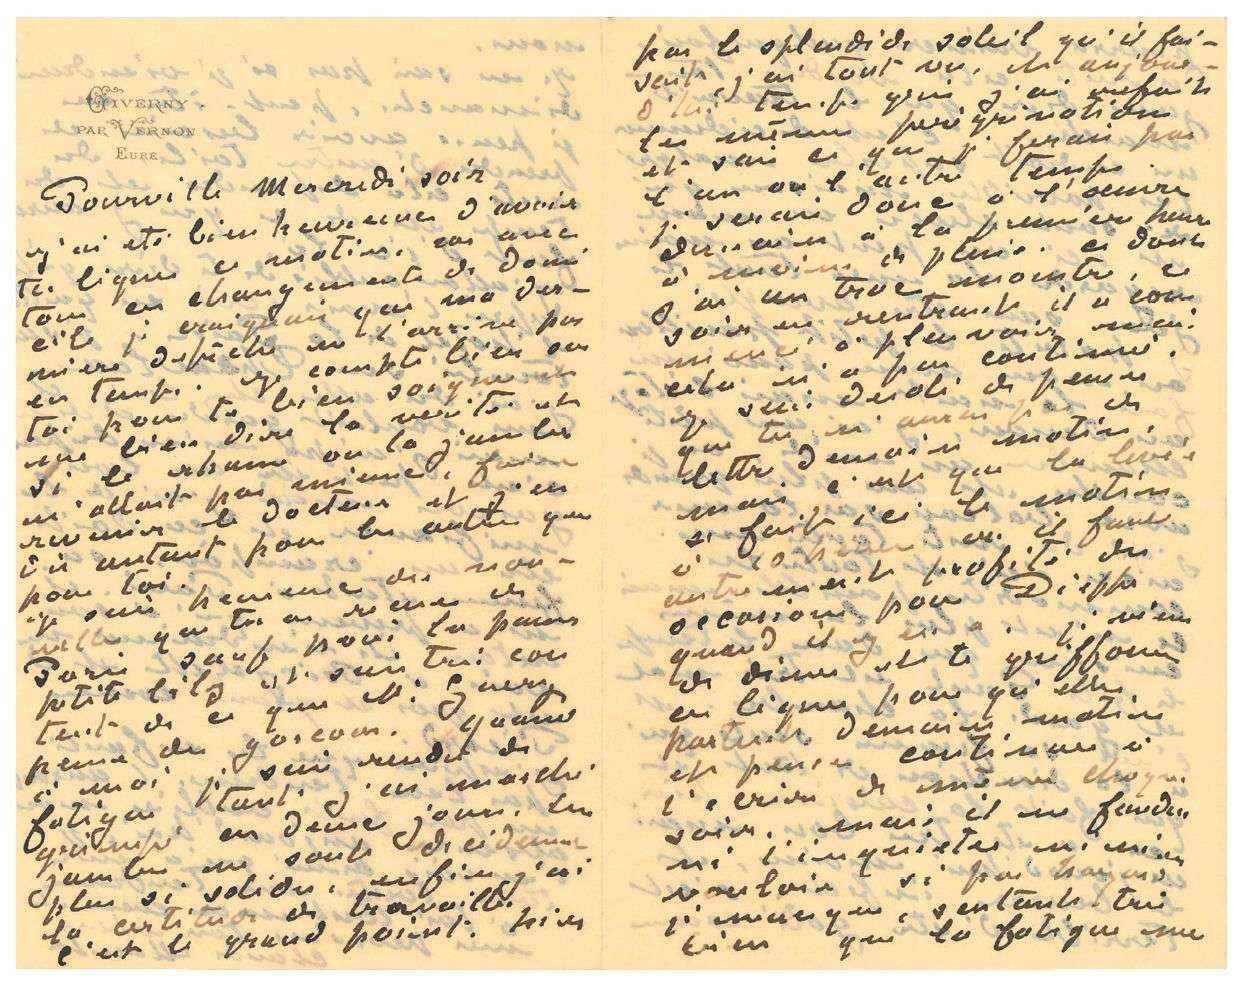 GIVERNY
PAR VERNON
EURE
Pourville Mercredi soir
j'ai été bien heureuse d'avoir
tes lignes ce matin, car avec
tous ces changements de domi
cile je craignais que ma der-
nière dépêche ne t'arrive pas
en temps. je compte bien sur
toi pour te bien soigner et
me bien dire la vérité et
si le rhume ou la jambe
n'allait pas mieux, faire
revenir le docteur et j'en
dis autant pour les autres que
pour toi.
je suis heureux des nou-
velles que tu as reçues de
Paris sauf pour la pauvre
petite Lily et suis très con
tent de ce que Mr
pense du garçon. quant
à moi je suis rendu de
fatigue tant j'ai marché
grimpé en deux jours. Les
jambes ne sont décidément
plus si solides, enfin j'ai
la certitude de travailler
c'est le grand point. hier
par le splendide soleil qu'il fai-
sait, j'ai tout vu, et aujour-
d'hui temps gris j'ai refait
les mêmes pérégrinations
et sais ce que je ferai par
l'un ou l'autre temps.
je serai donc à l'œuvre
demain à la première heure
à moins de pluie, ce dont
j'ai un trac monstre, ce
soir en rentrant il a com
mencé à pleuvoir mais
cela n'a pas continué.
je suis désolé de penser
que tu n'auras pas de
lettre demain matin.
mais c'est que la levée
se fait ici le matin
à 10 heures ou il faut
autrement profiter des
occasions pour Dieppe
quand il y en a. je viens
de dîner et te griffonne
ces lignes pour qu'elles
partent demain matin
et pense continuer à
t'écrire de même chaque
soir, mais il ne faudra
ni t'inquiéter ni m'en
vouloir si par hasard
je manque, sentant très
bien que la fatigue me